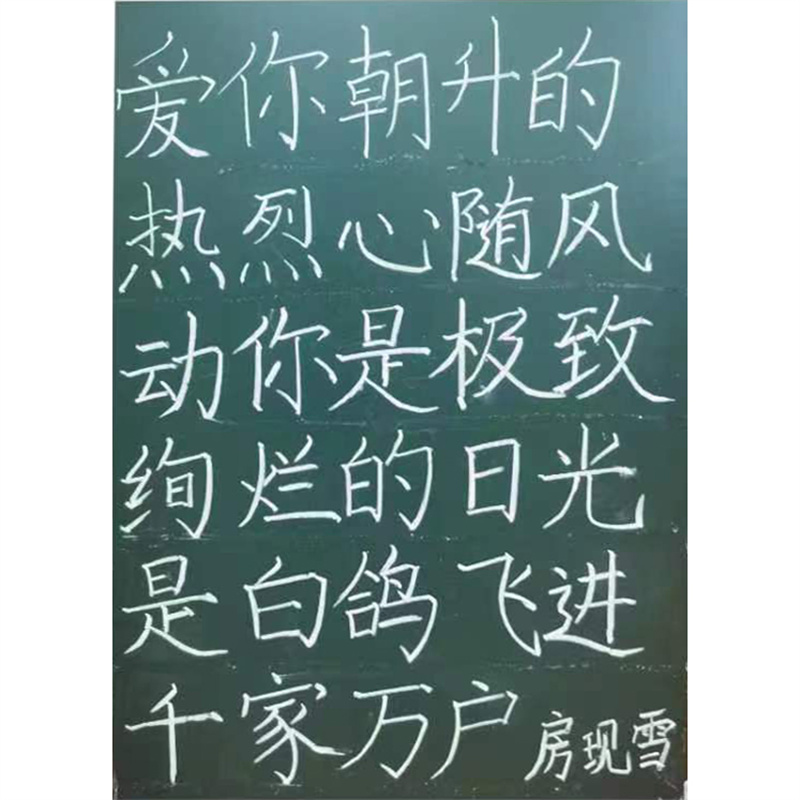 爱你朝升的
热烈心随风
动你是极致
绚烂的日光
是白鸽飞进
千家万户 房现雪